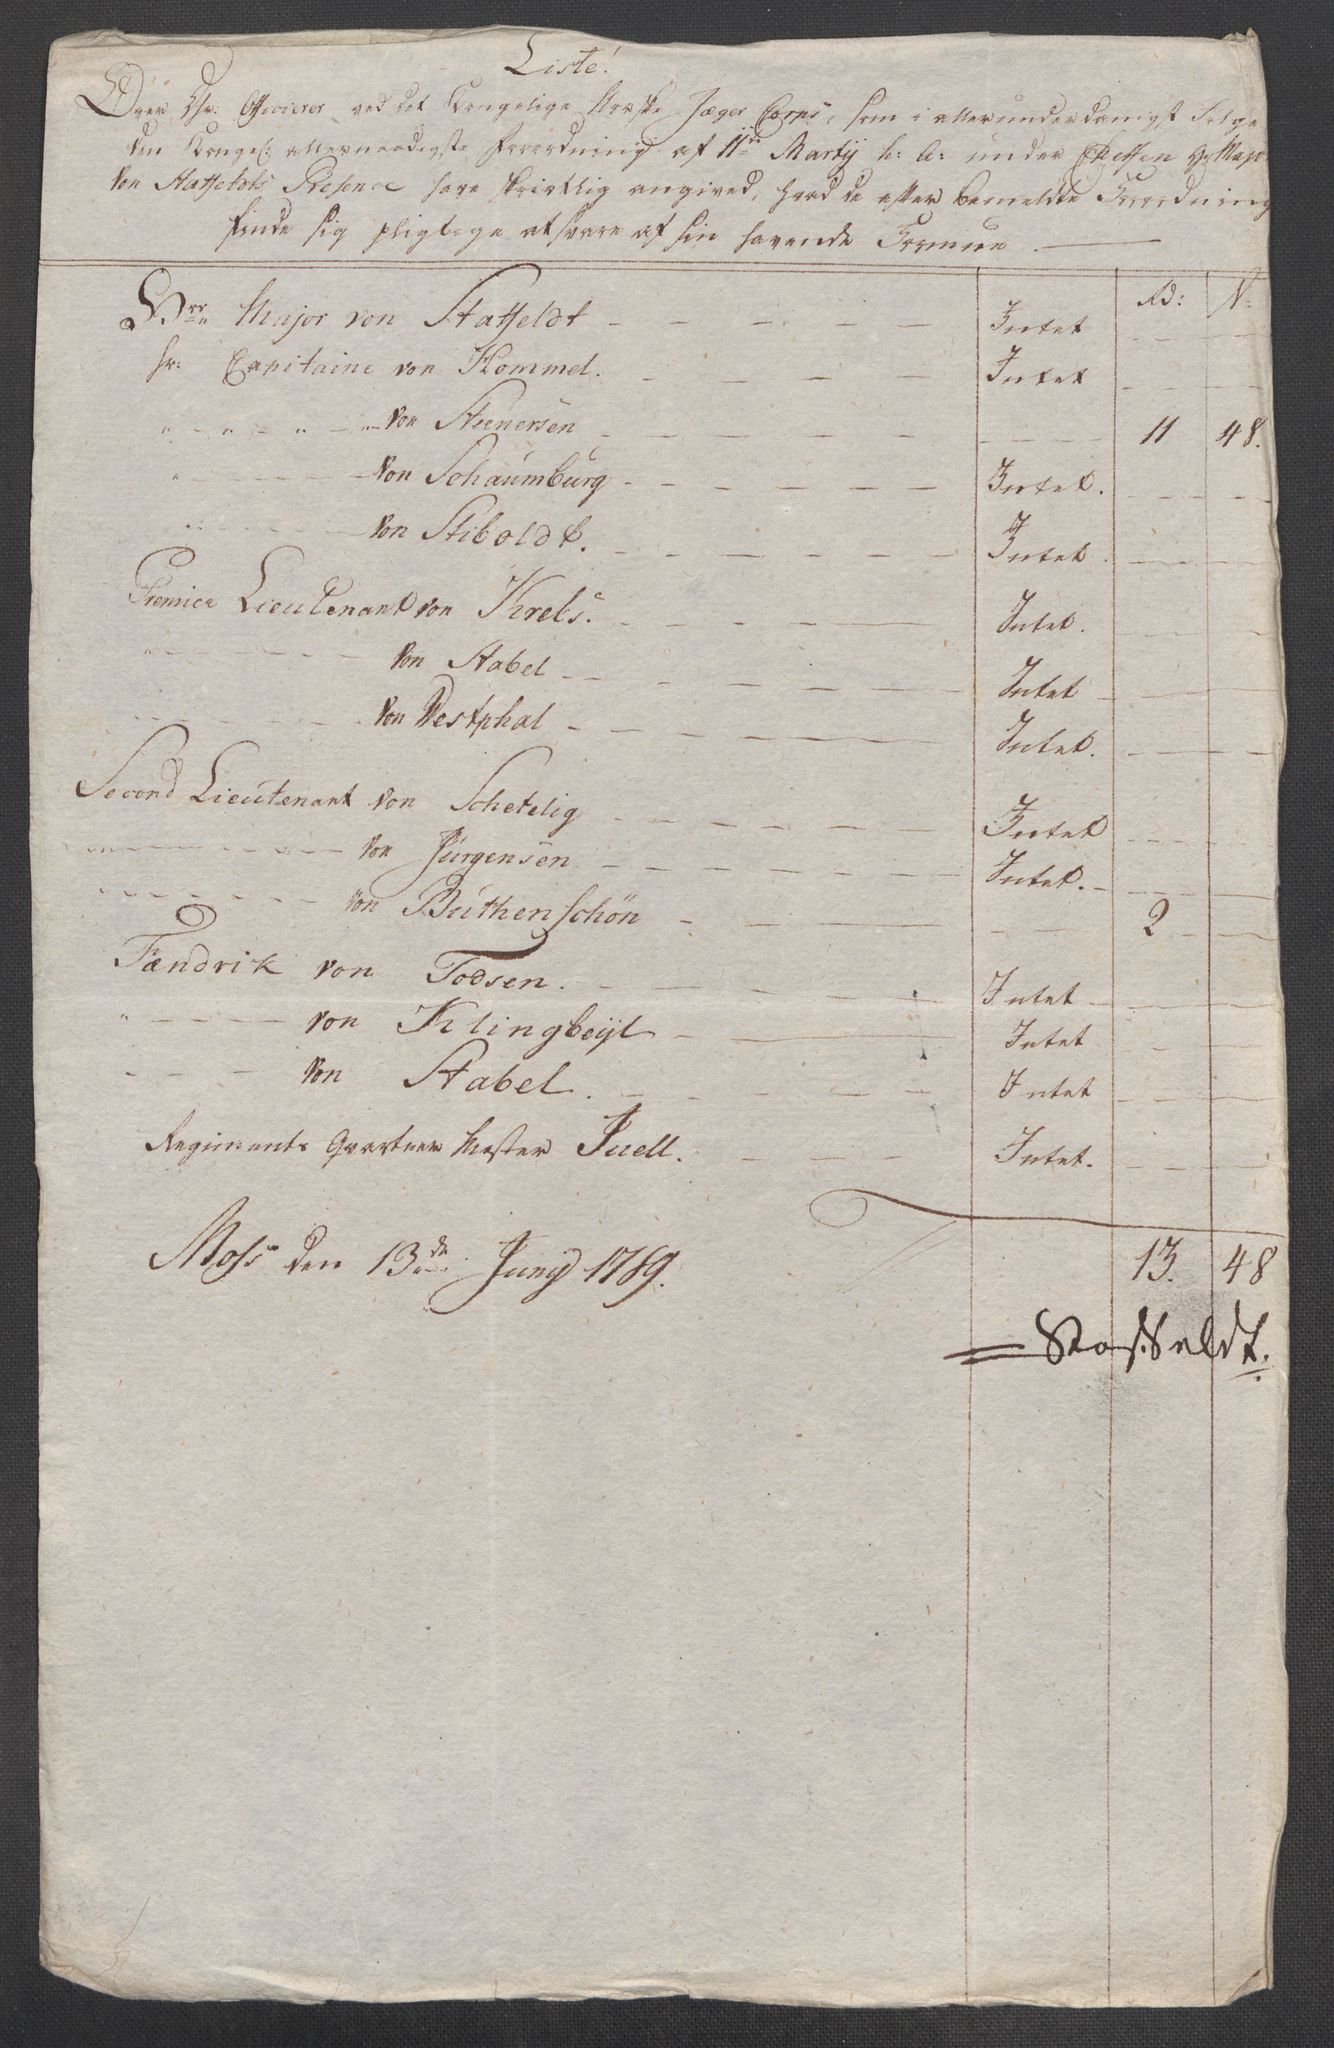 Liste!
Over Hr: Officierer ved det Kongelige Norske Jæger Corps, som i allerunderdanigst Følge
den Kongel: allernaadigste Forordning af 11te Martij h: a: under Cheffen Hr Major
von Staffeldts Presence have skriftlig angived, hvad de efter bemeldte Forordning
finde sig pligtige at svare af sin havende Formue.
Rd: S:
Hrr. Major von Staffeldt - - - - - Intet - - -
hr: Capitaine von Hommel. - - - - - Intet - - -
" - " - " - " von Steenersen - - - - - - - - 11 48.
" - - - von Schaumburg - - - - - Intet. - - -
" - - - von Stiboldt. - - - - - Intet. - - -
Premier Lieutenant von Krebs. - - - - Intet. - - -
" - - - von Stabel - - - - - Intet - - -
- - - von Westphal - - - - - Intet. - - -
Second Lieutenant von Schetelig - - - - - Intet - - -
- - - von Jürgensen - - - - - Intet. - - -
- - - von Büthenschön - - - - - - - 2 -
Fændrik von Todsen. - - - - - Intet - - -
" - - - von Klingbeijl - - - Intet - - -
- - - von Stabel. - - - - - Intet - - -
Regiments Qvarteer Mester Juell. - - - Intet. - - -
13. 48
Moss den 13de Junij 1789.
Staffeldt.